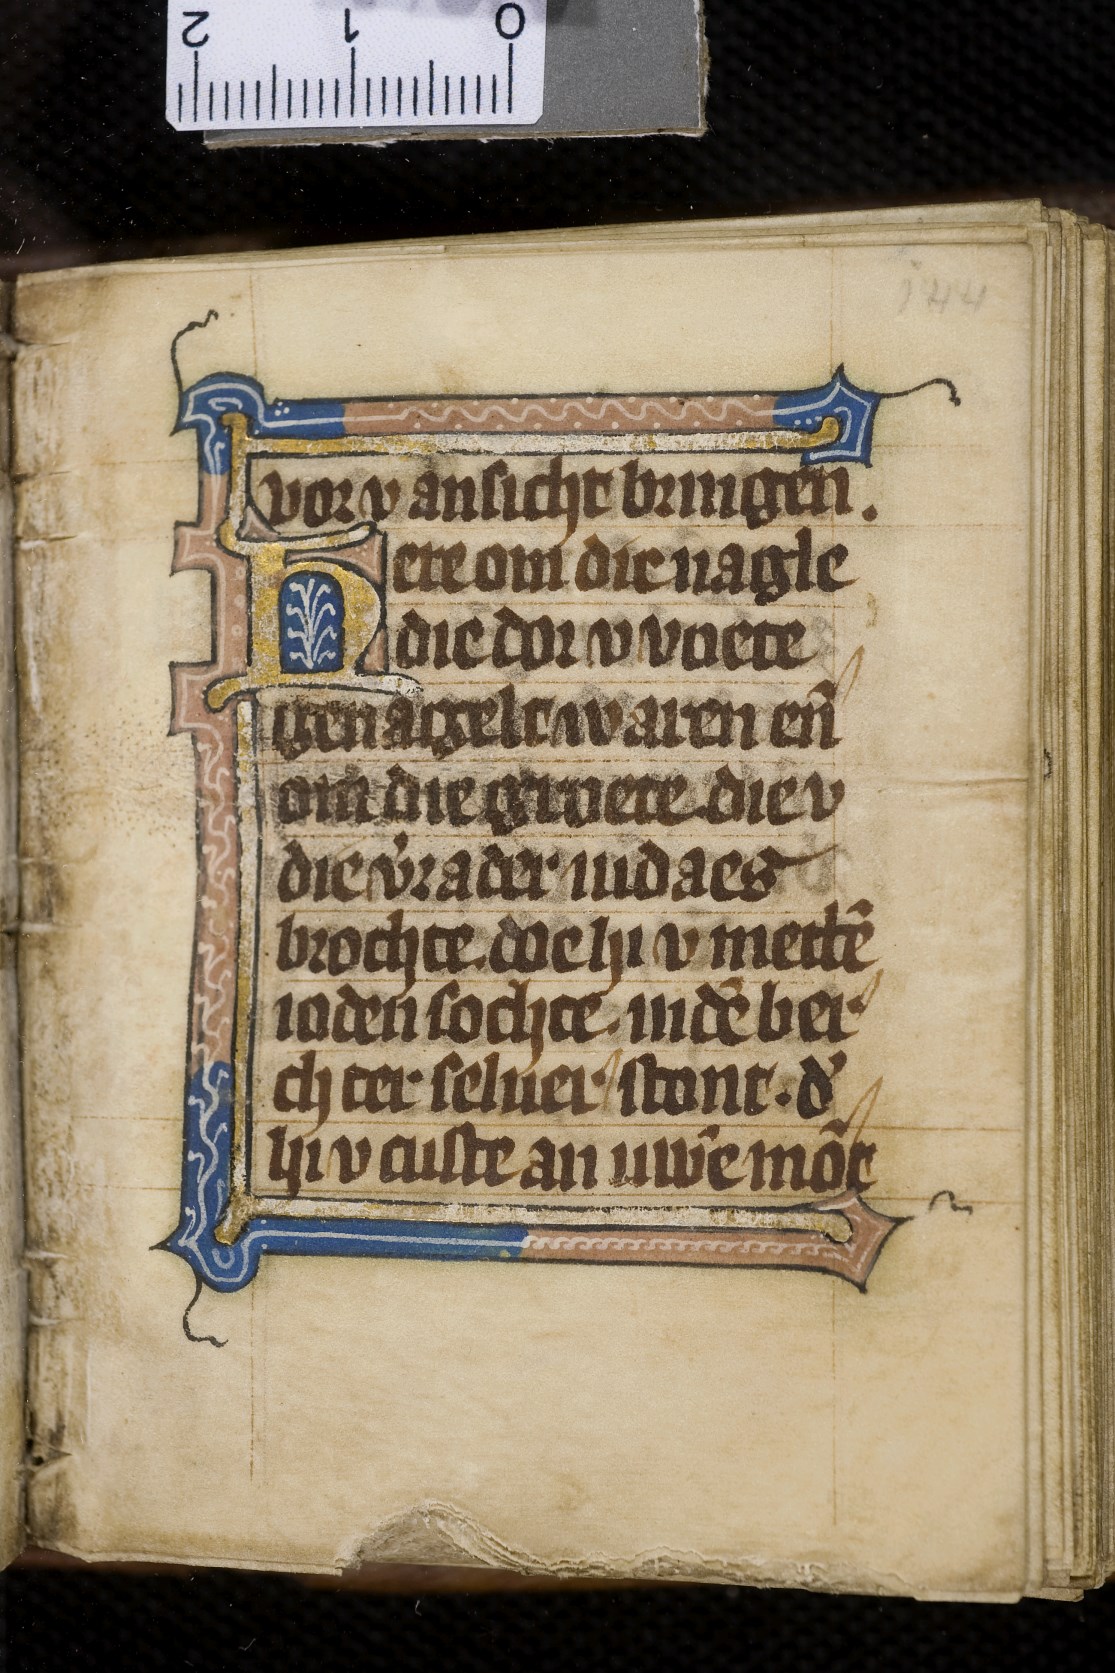 2 1 0
144
vor v ansicht bringen.
Hete om die nagle
die dor v voete
genagelt waren en̄
om die groete die v
die v̓rader iudaes
brochte. doe hi v mettē
ioden sochte. in dē bei
chter seluer stont. d̓
hi v custe an uwē mōt